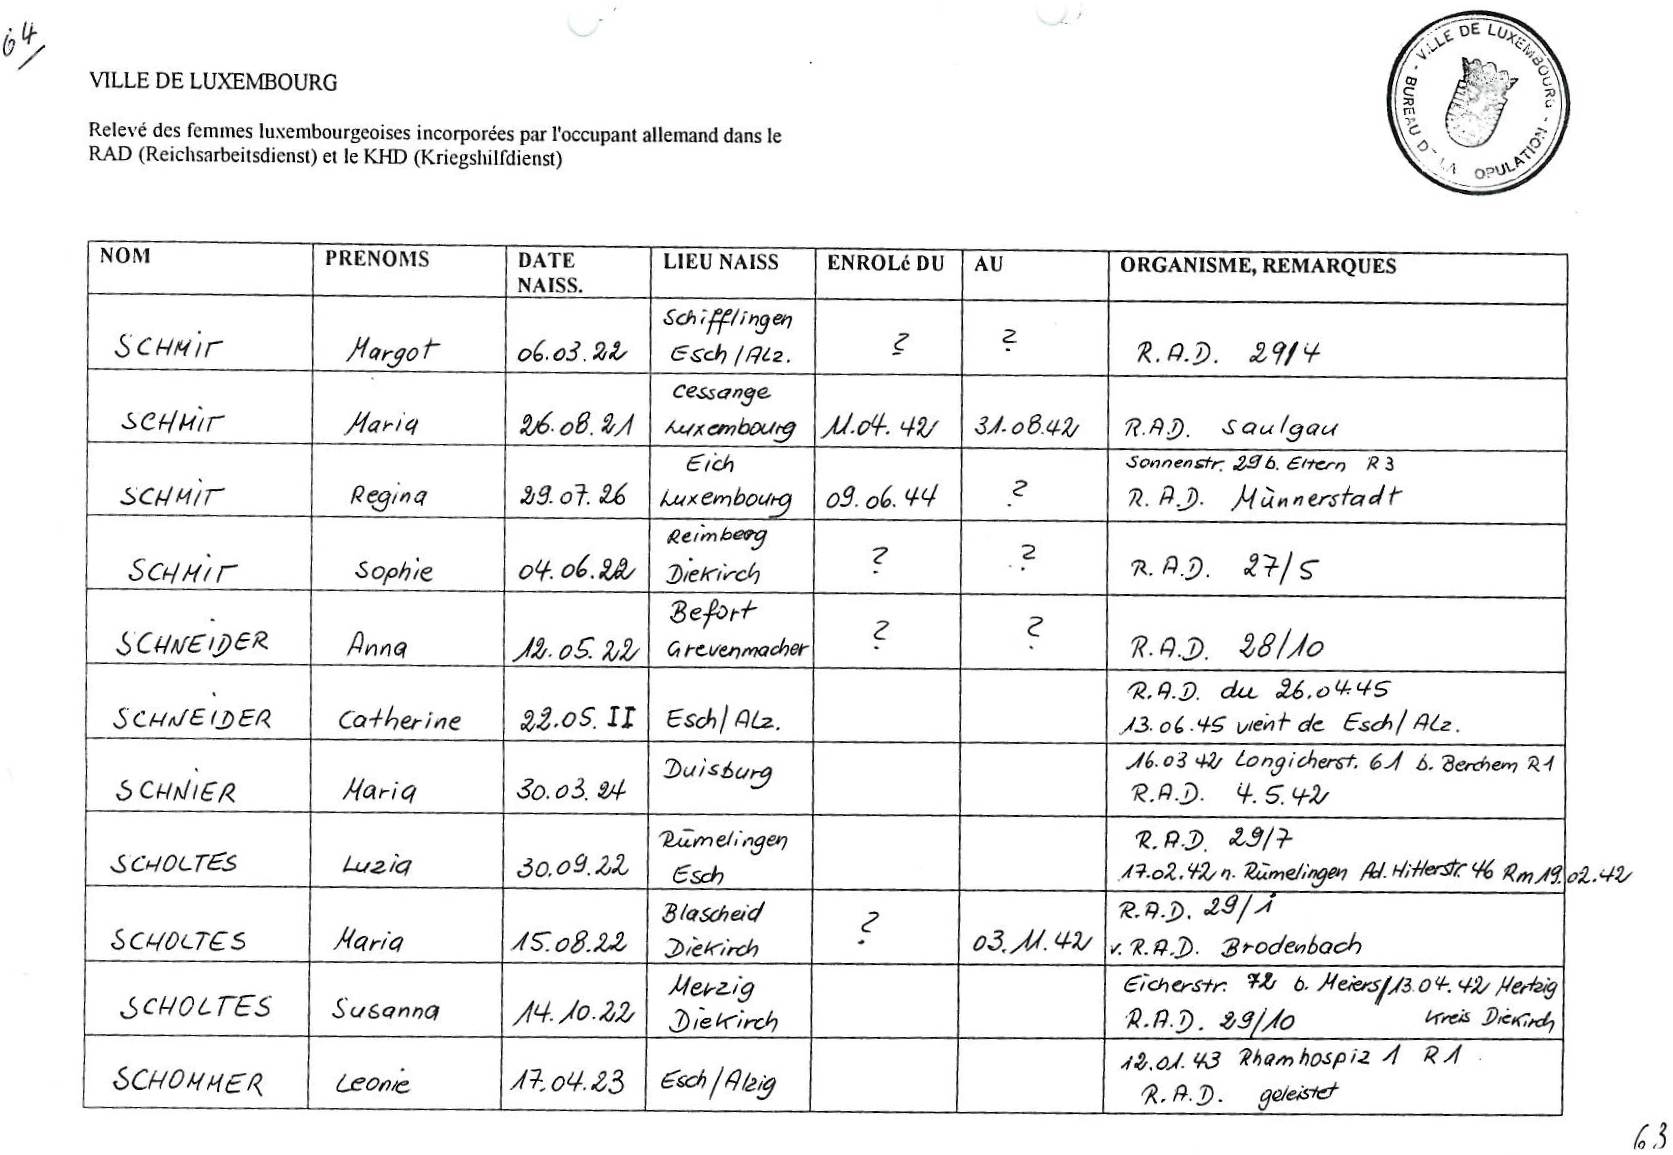 64
VILLE DE LUXEMBOURG
Relevé des femmes luxembourgeoises incorporées par l'occupant allemand dans le
RAD (Reichsarbeitsdienst) et le KHD (Kriegshilfdienst)
- VILLE DE LUXEMBOURG - BUREAU DE LA OPULATION
NOM PRENOMS DATE NAISS. LIEU NAISS ENROLé DU AU ORGANISME, REMARQUES
Schifflingen
SCHMIT Margot 06.03.22 Esch/Alz. ? ? R.A.D. 29/4
Cessange
SCHMIT Maria 26.08.21 Luxembourg 11.04.42 31.08.42 R.A.D. Saulgau
Eich Sonnenstr. 29 b. Eltern R3
SCHMIT Regina 29.07.26 Luxembourg 09.06.44 ? R.A.D. Münnerstadt
Reimberg
SCHMIT Sophie 04.06.22 Diekirch ? ? R.A.D. 27/5
Befort
SCHNEIDER Anna 12.05.22 Grevenmacher ? ? R.A.D. 28/10
R.A.D. du 26.04.45
SCHNEIDER Catherine 22.05.II Esch/Alz. 13.06.45 vient de Esch/Alz.
Duisburg 16.03 42 Longicherst. 61 b. Berchem R1
SCHNIER Maria 30.03.24 R.A.D. 4.5.42
Rümelingen R.A.D. 29/7
SCHOLTES Luzia 30.09.22 Esch 17.02.42 n. Rümelingen Ad. Hitlerstr. 46 Rm 19.02.42
Blascheid R.A.D. 29/1
SCHOLTES Maria 15.08.22 Diekirch ? 03.11.42 v. R.A.D. Brodenbach
Merzig Eicherstr. 72 b. Meiers/13.04.42 Hertzig
SCHOLTES Susanna 14.10.22 Diekirch R.A.D. 29/10 Kreis Diekirch
12.01.43 Rhamhospiz 1 R1
SCHOMMER Leonie 17.04.23 Esch/Alzig R.A.D. geleistet
63